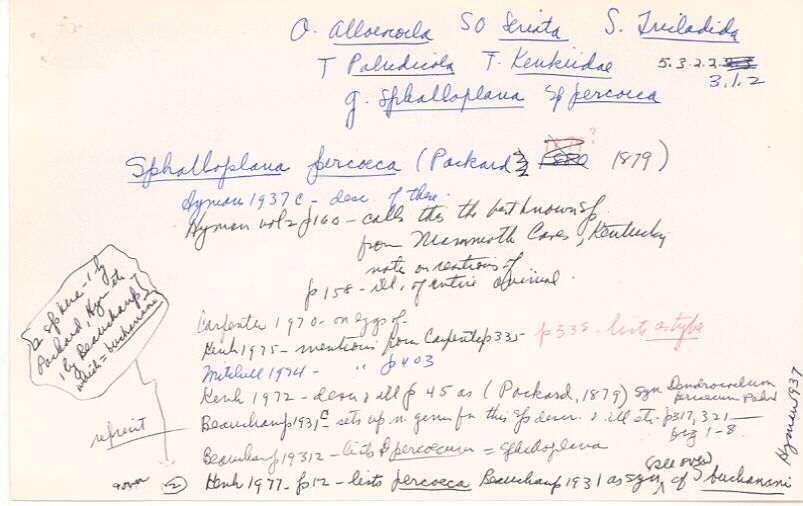 O. Alloeocoela SO Seriata S. Tricladida
T Paludicola F. Kenkiidae 5.3.2.2.
3.1.2
g. Sphalloplana sp percoeca
Sphalloplana percoeca (Packard 1879)
Hyman 1937c - desc. of there.
Hyman vol2 p160 - calls this the best known sp.
from Mammoth Caves, Kentucky
note on rections of
p158 - ill. of entire animal.
2 sp here - 1 by
Packard, Hyman etc
1 by Beauchamp
which = buchanani
Carpenter 1970 - on eggs of
Kenk 1975 - mentions from Carpenter p335 p338 - lists as type
Mitchell 1974 - " p403
Kenk 1972 - descr & ill p45 as (Packard, 1879) syn Dendrocoelum
percoecum Pakd
Beauchamp 1931c - sets up n. genus for this sp descr. & ill etc. p317, 321
fig 1-8.
reprint
Beauchamp 19312 - lists D percoecum = Sphalloplana
(see over)
over 2 Kenk 1977 - p12 - lists percoeca Beauchamp 1931 as syn of S buchanani
Hyman 1937